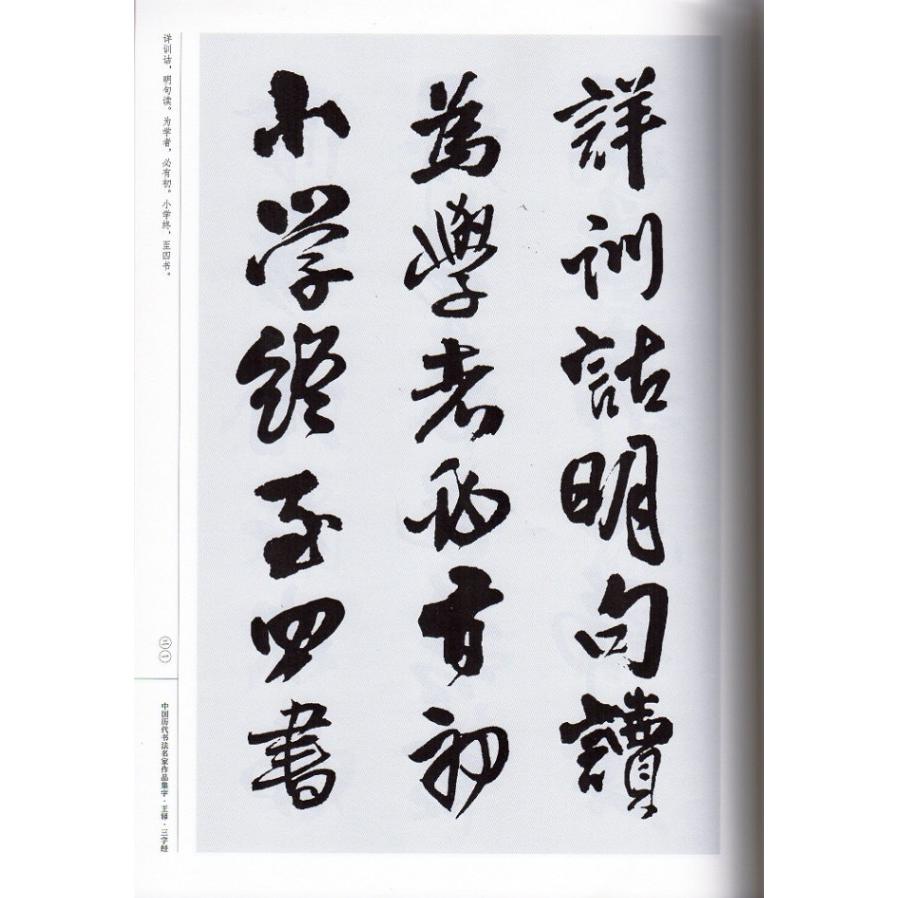 詳訓詁明句讀
為學者必有初
小学終至四書
详训诂，明句读。为学者，必有初。小学终，至四书。
二一
中国历代书法名家作品集字·王铎·三字经